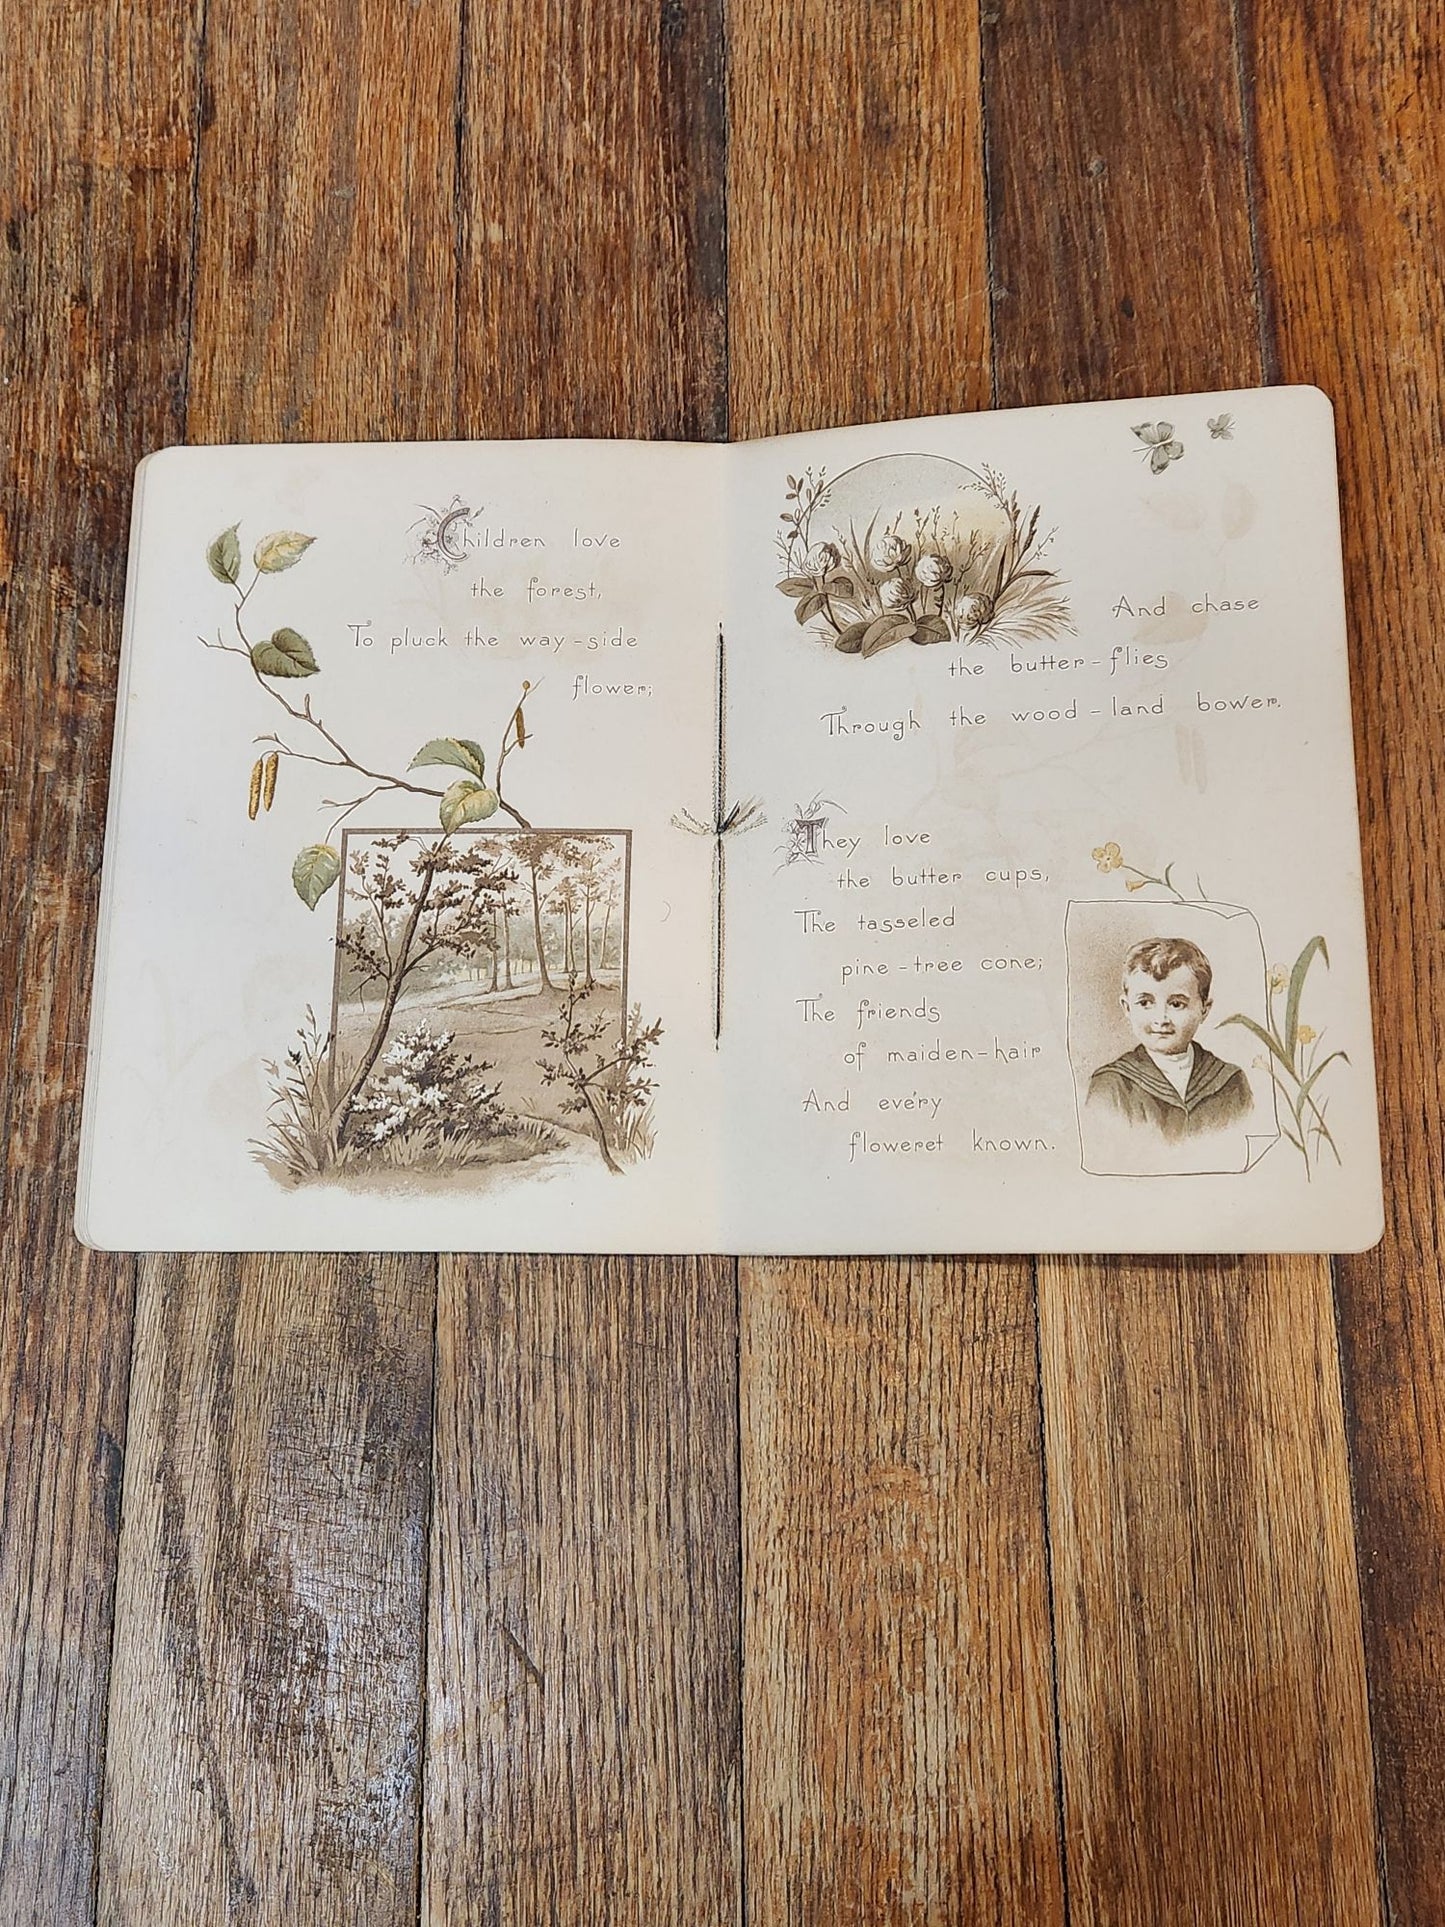 Children love
the forest,
To pluck the way-side
flower;
And chase
the butter-flies
Through the wood-land bower.
They love
the butter cups,
The tasseled
pine-tree cone;
The friends
of maiden-hair
And eve'ry
floweret known.